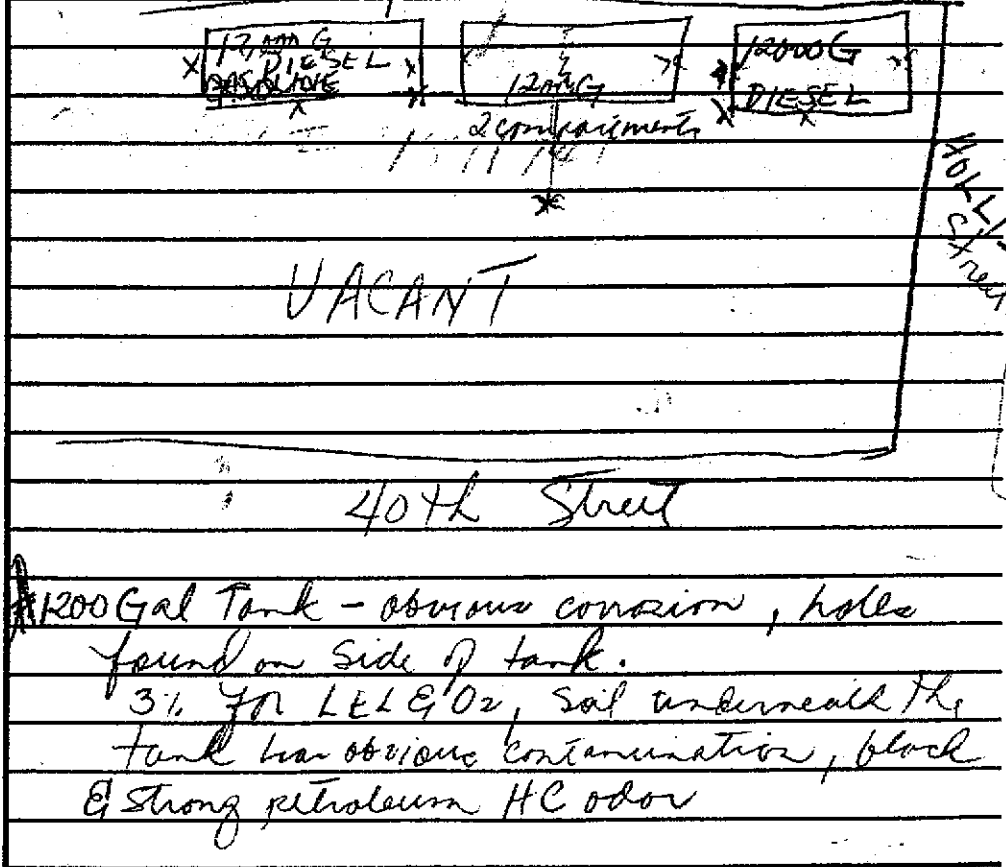 DIESEL
GASOLINE
12000G
DIESEL
2 compartments
Street
VACANT
40th Street
1200 Gal Tank - obvious corrosion, holes
found on side of tank.
3% for LEL & O2, soil underneath the
tank has obvious contamination, black
& strong petroleum HC odor